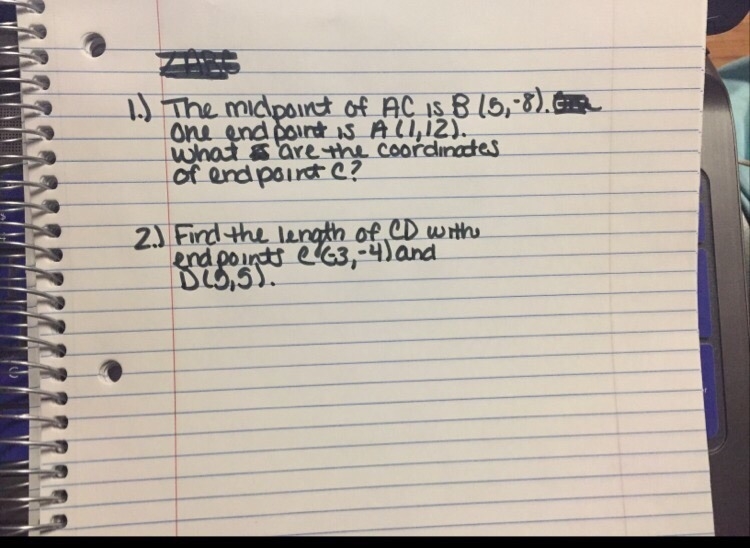 1.) The midpoint of AC is B (5,-8).
One endpoint is A (1,12).
What are the coordinates
of endpoint C?
2.) Find the length of CD with
endpoints C(-3,-4) and
D(5,5).